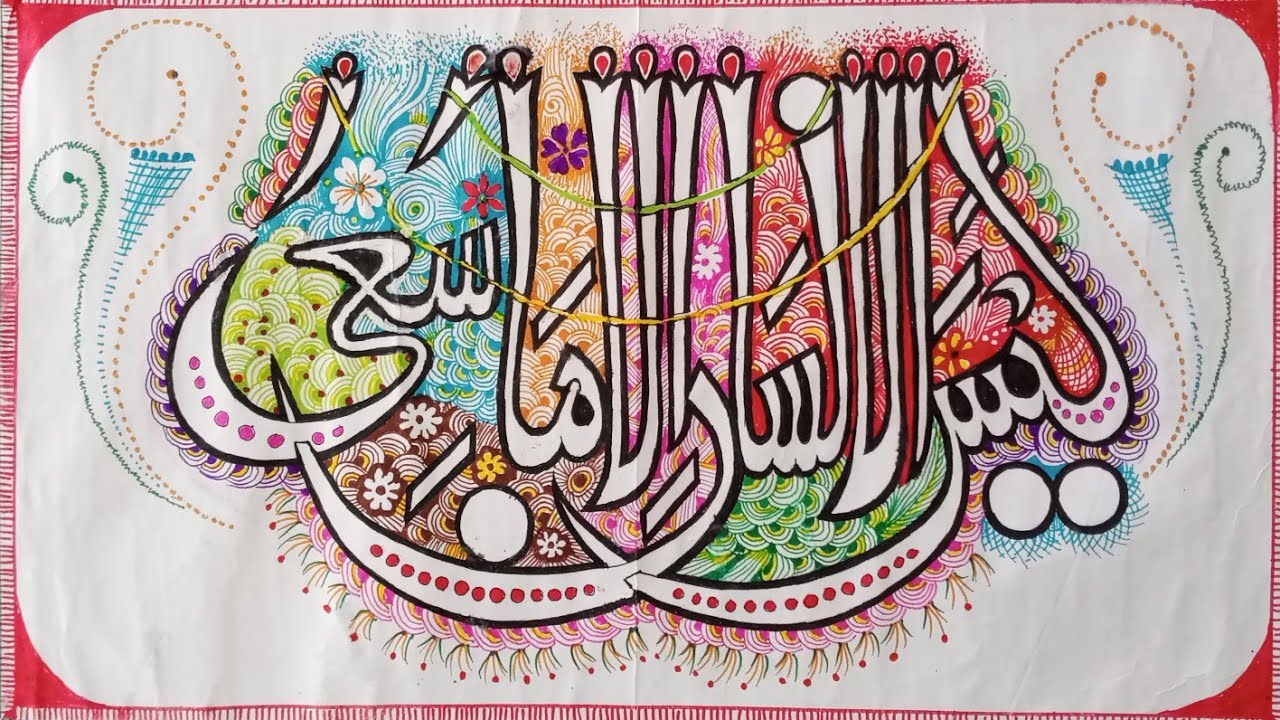 ليس للانسان الا ما سعى